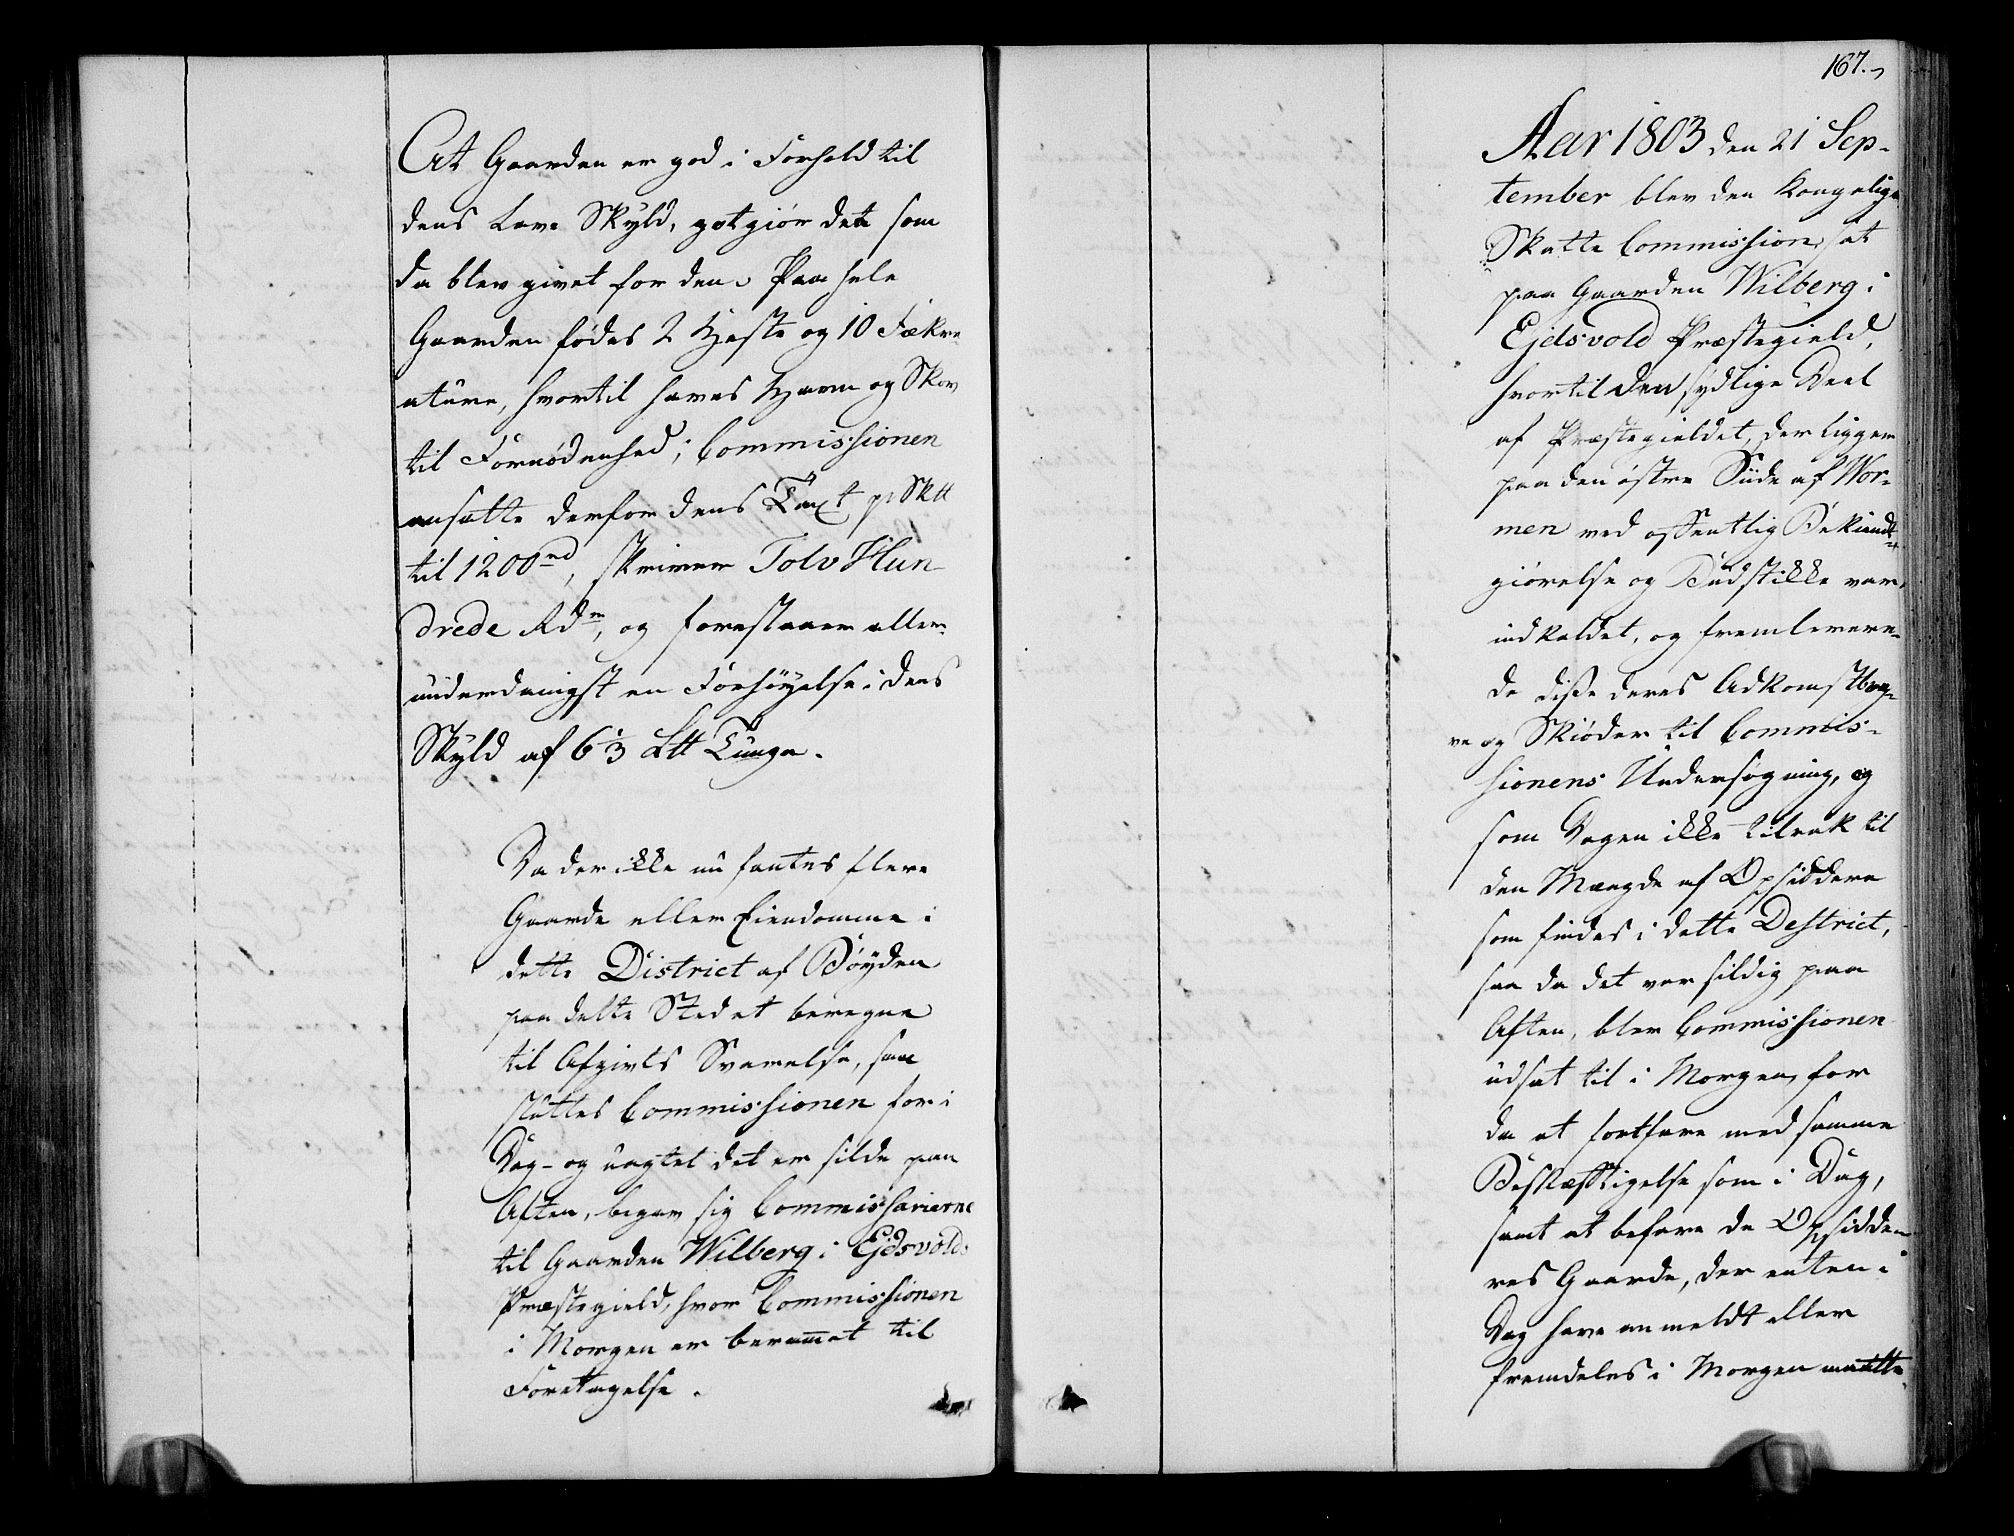 At Gaarden er god i Forhold til
dens Lave Skyld, gotgiør det som
da blev givet for den. Paa hele
Gaarden fødes 2 Heste og 10 Fækre-
ature, hvortil haves Havn og Skov
til Fornødenhed; Commissionen
ansatte derfor dens Taxt pr Sktt
til 1200rd, skriver Tolv Hun
drede Rdr, og forestaaer aller-
underdanigst en Forhøyelse i dens
Skyld af 6⅓ Ltt Tunge.
Da der ikke nu fantes flere
Gaarde eller Eiendomme i
dette District af Bøyden
paa dette Sted at beregne
til Afgivts Svarelse, saa
sluttes Commissionen for i
Dag - og uagtet det er silde paa
Aften, begav sig Commissarierne
til Gaarden Wilberg i Ejdsvolds
Præstegield, hvor Commissionen
i Morgen er berammet til
Foretagelse.
167.
Aar 1803 den 21 Sep-
tember blev den Kongelige
Skatte Commission sat
paa Gaarden Wilberg i
Ejdsvold Præstegield,
hvortil den sydlige Deel
af Præstegieldet, der ligger
paa den østre Siide af Wor-
men ved offentlig Bekiendt-
giørelse og Budstikke var
indkaldet, og fremlevere-
de disse deres Adkomstbre-
ve og Skiøder til Commis-
sionens Undersøgning, og
som Dagen ikke tilrak til
den Mængde af Opsiddere
som findes i dette Destrict,
saa da det var sildig paa
Aften, blev Commissionen
udsat til i Morgen, for
da at fortfare med samme
Beskæftigelse som i Dag,
samt at befare de Opsidde-
res Gaarde, der enten i
Dag have anmeldt eller
fremdeles i Morgen maatte